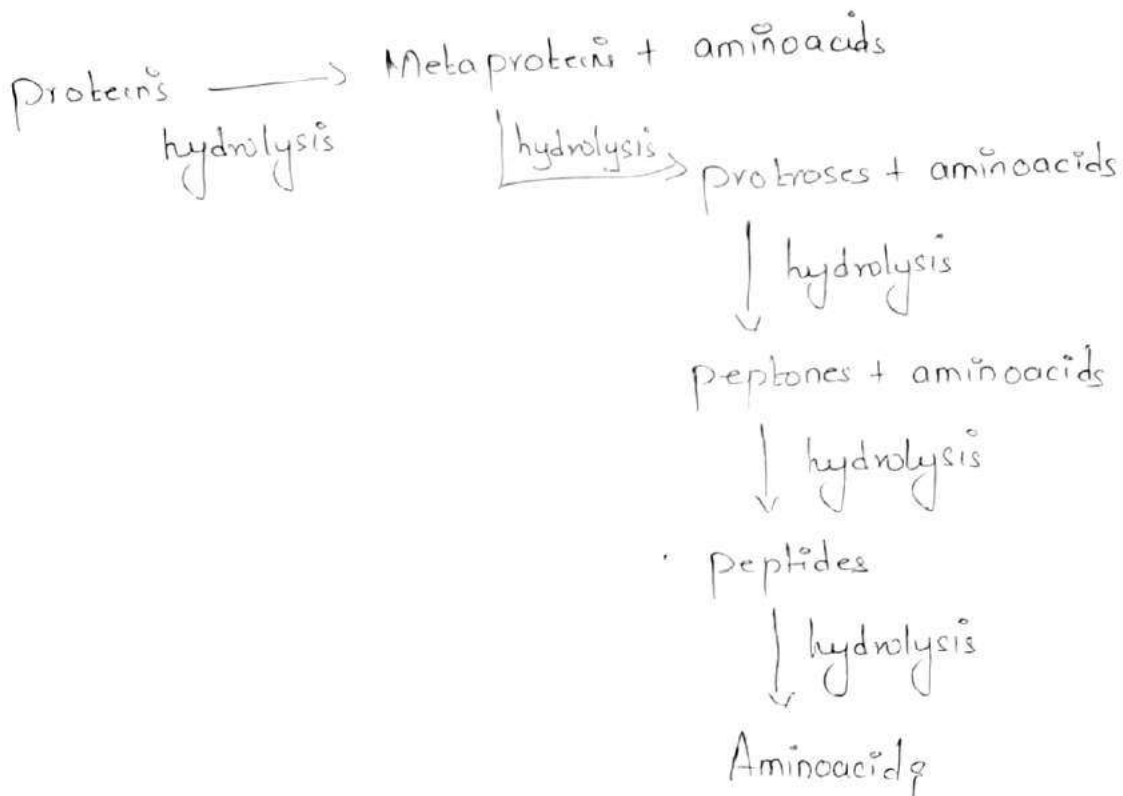 Proteins → Metaproteins + aminoacids
hydrolysis
hydrolysis
protroses + aminoacids
hydrolysis
peptones + aminoacids
hydrolysis
peptides
hydrolysis
Aminoacids